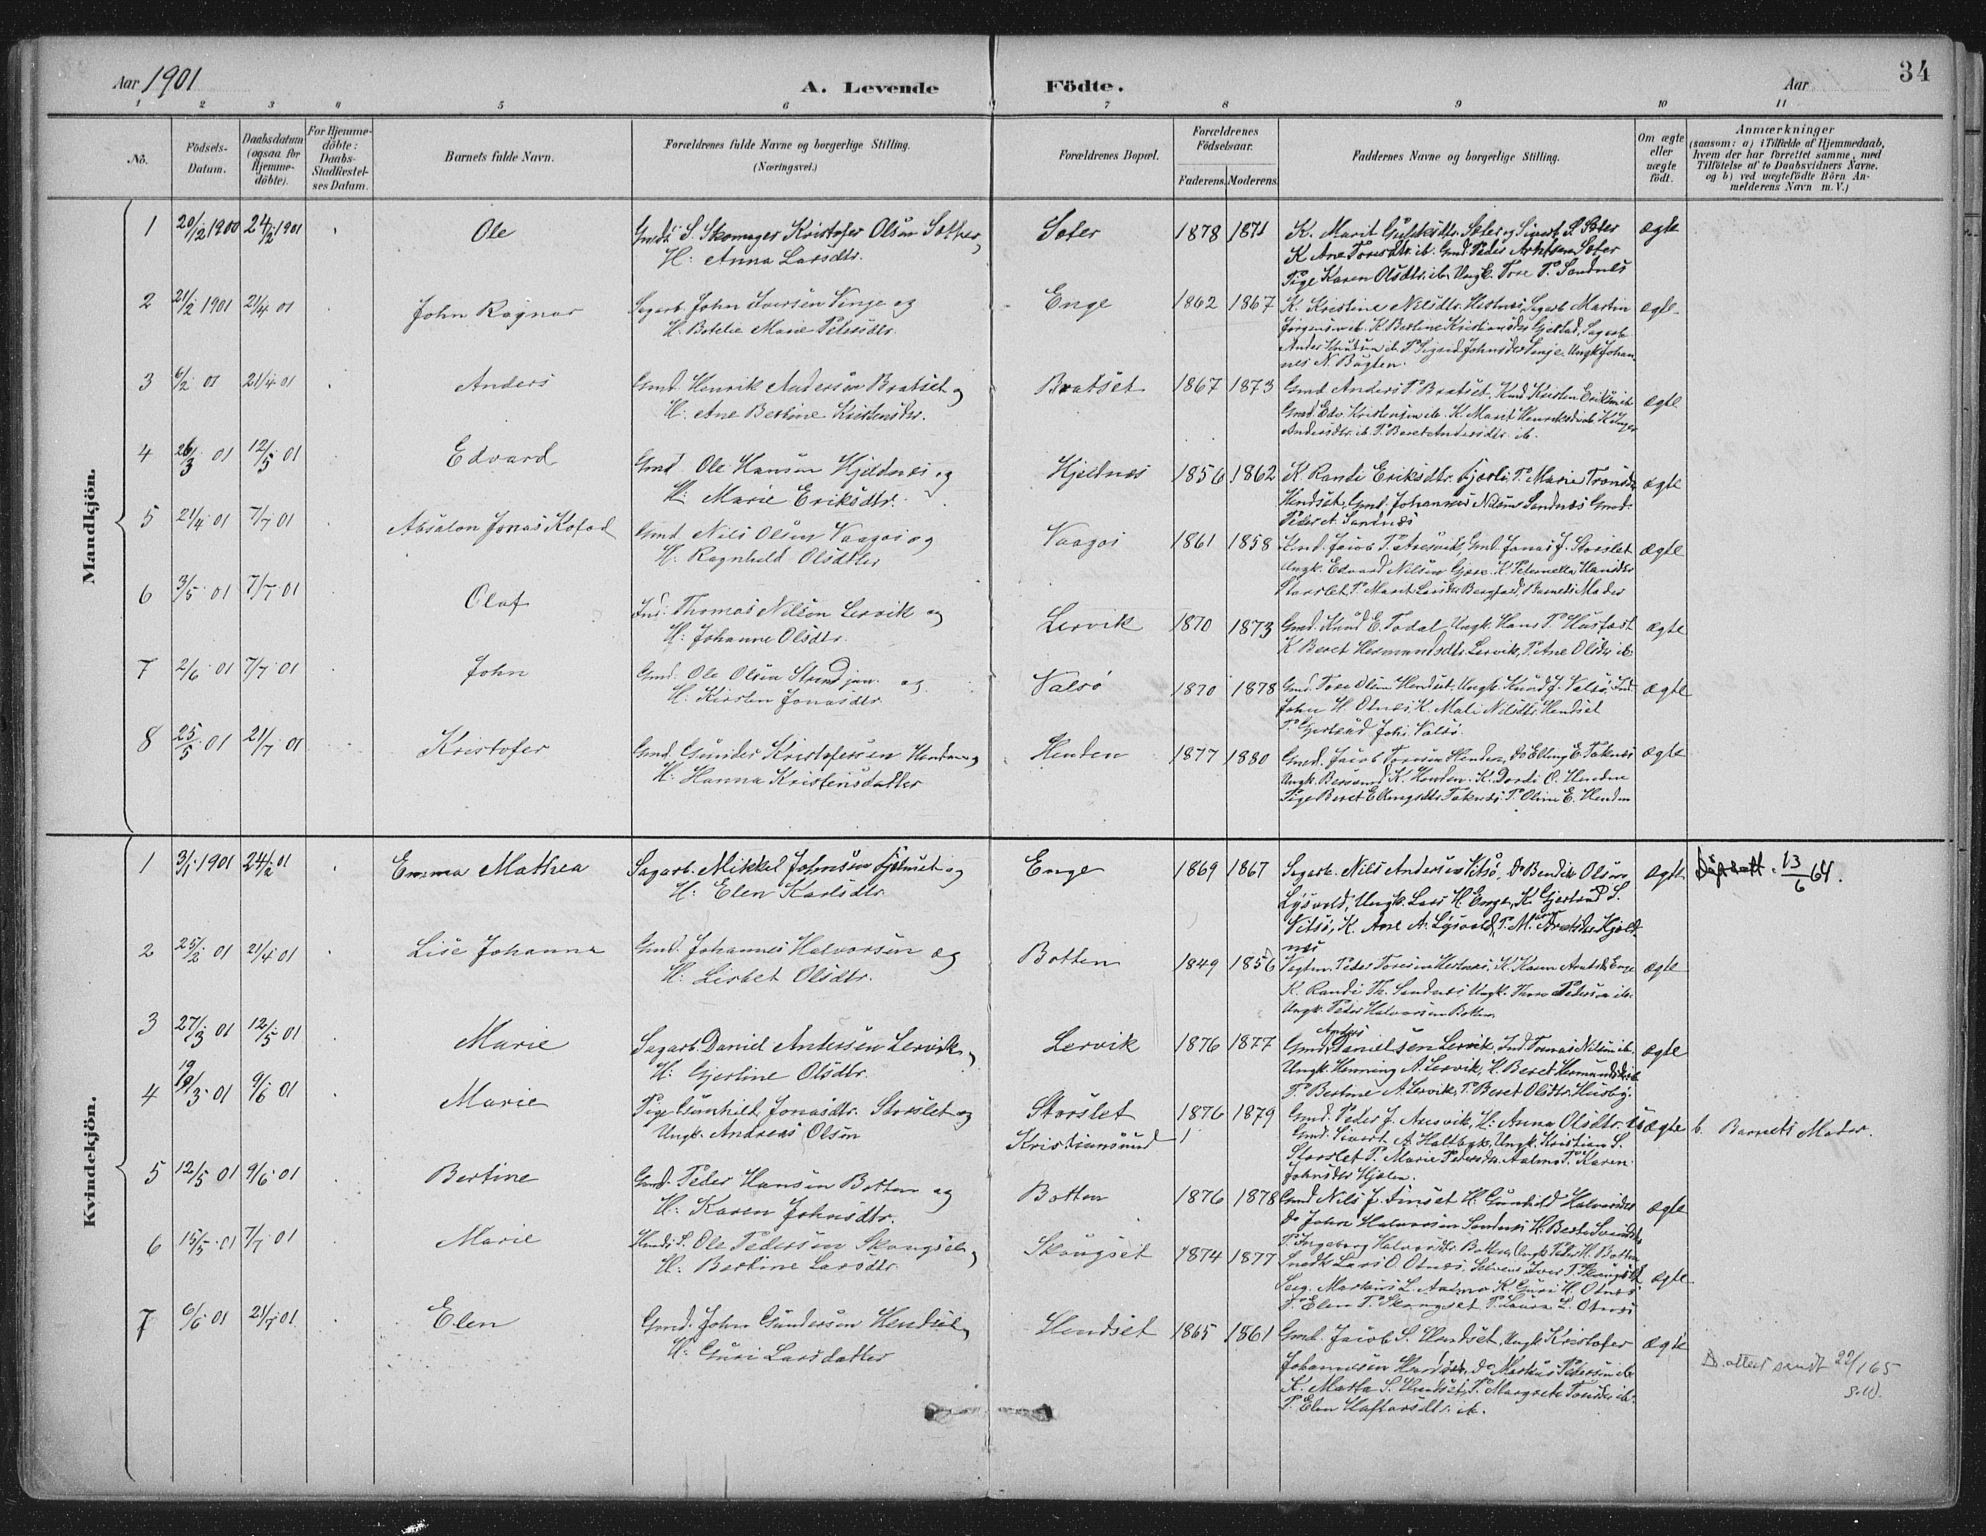 Aar 1901
A. Levende Födte.
Aar
34
1 2 3 4 5 6 7 8 9 10 11
No.
Födsels-Datum.
Daabsdatum (ogsaa for Hjemme-döbte).
For Hjemme-döbte: Daabs-Stadfæstel-ses Datum.
Barnets fulde Navn.
Forældrenes fulde Navne og borgerlige Stilling. (Næringsvei.)
Forældrenes Bopæl.
Forældrenes Födselsaar.
Faderens. Moderens.
Faddernes Navne og borgerlige Stilling.
Om ægte eller uægte födt.
Anmærkninger (saasom: a) i Tilfælde af Hjemmedaab, hvem der har forrettet samme, med Tilföielse af to Daabsvidners Navne. og b) ved uægtefödte Börn An-melderens Navn m. V.)
Mandkjön.
1 20/12 1900 24/2 1901 Ole
Gmds S. Skomager Kristofer Olsen Sæther,
H: Anna Larsdtr.
Sæter 1878 1871
K. Marit Sæter og Sivert S. Sæter
K Ane Toresdtr. ib. Gmd Peder Sæter
Pige Karen Olsdtr. ib. Ungk. Tore P. Sandnes
ægte
2 21/2 1901 21/4 01 John Ragnar
Sagarb. John Iversen Venge og
H. Botelie Marie Petersdtr.
Enge 1862 1867
K. Kristine Nilsdtr. Hestnes, Sagarb Martin
Jörgensen ib. K. Bertine Kristiansdtr Gjerstad, Sagarb
nes N. Bugten.
ægte
3 6/2 01 21/4 01 Anders
Gmd. Henrik Andersen Bratset og
H: Ane Bertine Kristensdtr.
Bratset 1867 1873
Gmd Anders P Bratset, Kmd Kristen Eriksen ib
Gmd. Edv. Kristensen ib. K. Marit Henriksdtr ib. K Inger
Andersdtr. ib. P. Beret Andersdtr. ib.
ægte
4 26/3 01 12/5 01 Edvard
Gmd. Ole Hansen Hjeldnes og
H: Marie Eriksdtr.
Hjeldnes 1856 1862
K Randi Eriksdtr. Fjærli, P. Marie Tronsdtr
Hendset, Gmd. Johannes Nilsen Sandnes Gmd.
Peder A. Sandnes
ægte
5 21/4 01 7/7 01 Absalon Jonas Kofod
Gmd Nils Olsen Vaagos og
H. Ragnhild Olsdatter
Vaagos 1861 1858
Gmd. Jacob P. Aresvik, Gmd. Jonas J. Storslet
Ungk. Edvard Nilsen Gjære. K. Peternella Hansdtr
Storslet P. Marit Larsdtr Barnets Moder
ægte
6 3/5 01 7/7 01 Olaf
Ind. Thomas Nilsen Lervik og
H. Johanne Olsdtr.
Lervik 1870 1873
Gmd. Knud E. Todal, Ungk. Hans P. Husfæst
K Beret Hermundsdtr. Lervik, P. Ane Olsdtr ib.
ægte
7 2/6 01 7/7 01 John
Gmd. Ole Olsen Strand jun. og
H. Kirsten Jonasdtr
Valsö 1870 1878
Gmd. Tore Olsen Hendset, Ungk. Knud J. Valsö, Ind.
John H. Otnes K. Mali Nilsdtr. Hendset
P. Gjertrud Joh. Valsö
ægte
8 25/5 01 21/7 01 Kristofer
Gmd. Gunder Kristofersen Henden og
H. Hanna Kristensdatter
Henden 1877 1880
Gmd. Jacob Toresen Henden, Do Elling E. Taknes
Ungk. Bersvend K. Henden. K. Dordi O. Henden
Pige Beret Ellingsdtr. Taknes P. Oline E. Henden
ægte
Kvindekjön.
1 3/1 1901 24/2 01 Emma Mathea
Sagarb. Mikkel Johnsen og
H. Elen Karlsdtr.
Enge 1869 1867
Sagarb. Nils Andersen Vitsö, Do Bendik Olsen
Lysvold, Ungk. Lars H. Enge, K. Gjertrud S.
Vitsö, K. Ane A. Lysvold, P. Hjeld
nes
ægte
13/6 64.
2 25/2 01 21/4 01 Lise Johanna
Gmd. Johannes Halvorsen og
H. Lisbet Olsdtr.
Botten 1849 1856
Peder Toresen Hestnes, K. Karen Enge
K. Randi Th. Sandnes Ungk. Thore Pedersen ib.
Ungk. Peder Halvorsen Botten
ægte
3 27/3 01 12/5 01 Marie
Sagarb. Daniel Andersen Lervik,
H. Gjertine Olsdtr.
Lervik 1876 1877
Anders
Gmd. Danielsen Lervik, Ind. Tomas Nilsen ib.
Ungk Henning A. Lervik, K. Beret Hermundsdtr ib
P. Bertine A. Lervik, P. Beret Olsdtr. Husby.
ægte
4 19/3 01 9/6 01 Marie
Pige Gunhild Jonasdtr. Storslet og
Ungk. Andreas Olsen
Storslet
Kristiansund
1876 1879
Gmd. Peder J. Aresvik, H: Anna Olsdtr. ib
Gmd. Sivert A. Ungk. Kristian S.
Storslet P. Marie Pedersdtr. P. Karen
Johnsdtr Hjelen.
uægte
b. Barnets Moder.
5 12/5 01 9/6 01 Bertine
Gmd. Peder Hansen Botten og
H: Karen Johnsdtr.
Botten 1876 1878
Gmd Nils J. H. Gunhild Halvorsdtr
Do John Halvorsen Sandnes K. Berte
P. Ingeborg Halvorsdtr. Botten, Ungk Peder H. Botten
ægte
6 15/5 01 7/7 01 Marie
Ole Pedersen Skougset,
H: Bertine Larsdtr.
Skougset 1874 1877
Lars O. Otnes. Iver P. Skougset
Markus L. K. Guri H. Otnes
P. Elen P. Skougset P. Laura L. Otnes
ægte
7 6/6 01 21/7 01 Elen
Gmd. John Gundersen Hendset,
H. Guri Larsdatter
Hendset 1865 1861
Gmd. Jacob S. Hendset, Ungk Kristofer
Johannesen Hendset, do Markus Petersen ib
K. Matta S. Hendset, P. Margrete Toresdtr ib.
P. Elen Haftorsdtr. ib.
ægte
D. attest sendt 22/1 65